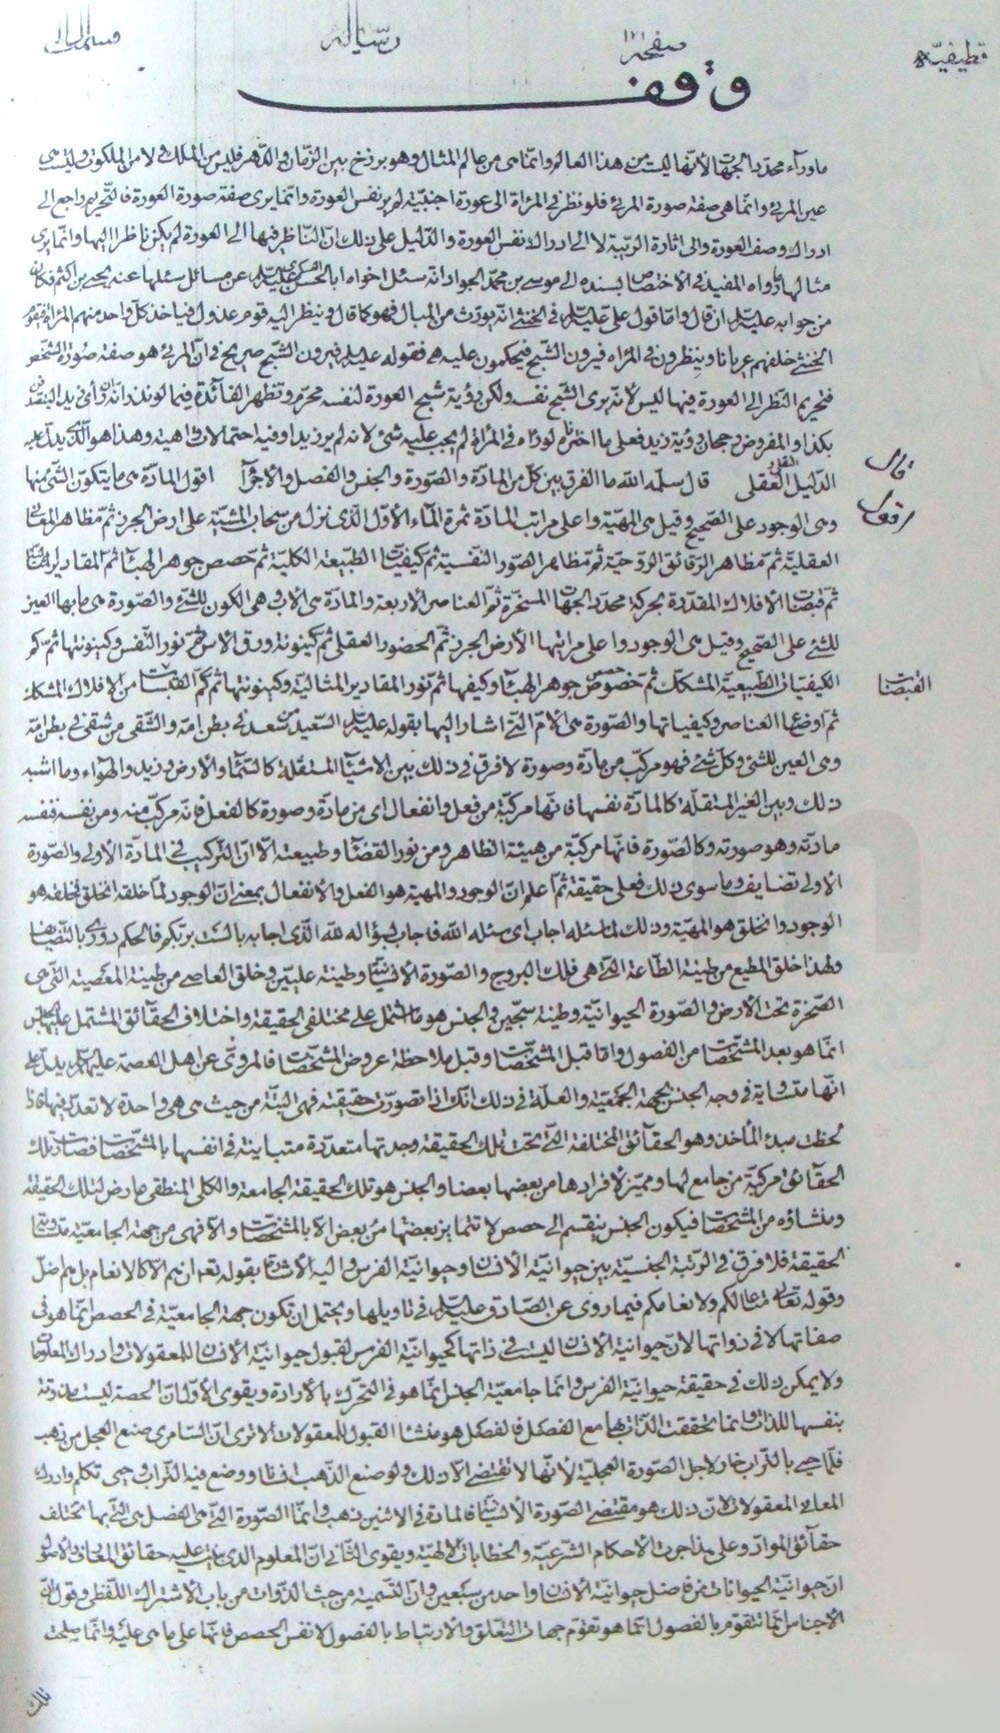 قطيفيّه صفحة ١٢١ رسالة
وقف
ماوراء محدد الجهات لأنها ليست من هذا العالم وانما هى من عالم المثال وهو برزخ بين الزمان والدهر فليس من الملك ولا من الملكوت وليست هى
عين المرئى وانما هى صفة صورة المرئى فلو نظر فى المرأة الى عورة اجنبية لم ير نفس العورة وانما يرى صفة صورة العورة فالتحريم راجع الى
ادراك وصف العورة والى اثارة الريبة لا الى ادراك نفس العورة والدليل على ذلك ان الناظر فيها الى العورة لم يكن ناظرا اليها وانما يرى
مثالها ما رواه المفيد فى الاختصاص بسنده الى موسى بن محمد الجواد انه سئل اخاه ابا الحسن العسكرى عليه السلم عن مسائل سئلها عنه يحيى بن اكثم فكان
من جوابه عليه السلم ان قال واما قول على عليه السلم فى الخنثى انه يورث من المبال فهو كما قال وينظر اليه قوم عدول فيأخذ كل واحد منهم المرأة فتقوم
الخنثى خلفهم عريانا وينظرون فى المرأه فيرون الشبح فيحكمون عليه هى فقوله عليه السلم فيرون الشبح صريح فى ان المرئى هو صفة صورة الشخص
فتحريم النظر الى العورة فيها ليس لأنه يرى الشبح نفسه ولكن رؤية شبح العورة لنفسه محرم وتظهر الفائدة فيما لو نذر انه ان رأى زيدا ليتصدقن
بكذا والمفروض رجحان رؤية زيد فعلى ما اخترناه لو راه فى المرأة لم يجب عليه شئ لانه لم ير زيدا وفيه احتمالات واهية وهذا هو الذى يدل عليه
الدليل العقلى قال سلمه الله ما الفرق بين كل من المادة والصورة والجنس والفصل والاجزآ اقول المادة هى ما يتكون الشئ منها
قال
اقول
وهى الوجود على الصحيح وقيل هى المهية واعلى مراتب المادة ثمرة الماء الأول الذى نزل من سحاب المشية على ارض الجرز ثم مظاهر المعانى
العقلية ثم مظاهر الرقائق الروحية ثم مظاهر الصور النفسية ثم كيفيات الطبيعة الكلية ثم حصص جوهر الهبآ ثم المقادير
ثم قبضات الأفلاك المقدرة بحركة محدد الجهات المسخرة ثم العناصر الاربعة والمادة هى الاب وهى الكون للشئ والصورة هى ما بها العين
للشئ على الصحيح وقيل هى الوجود واعلى مراتبها الأرض الجرز ثم الحضور العقلى ثم كينونة ورق الاس ثم نور النفس وكينونتها ثم كم
الكيفيات الطبيعية المشكك ثم خصوص حصص جوهر الهبآ وكيفها ثم نور المقادير المثالية وكينونتها ثم كم القبضات من الافلاك المشكك
القبضات
ثم اوضع العناصر وكيفياتها والصورة هى الام التى اشار اليها بقوله عليه السلم السعيد من سعد فى بطن امه والشقى من شقى فى بطن امه
وهى العين للشئ وكل شئ فهو مركب من مادة وصورة لا فرق فى ذلك بين الاشيآ المستقلة كالسمآ والارض وزيد والهوآء وما اشبه
ذلك وبين الغير المستقلة كالمادة نفسها فانها مركبة من فعل وانفعال اى من مادة وصورة كالفعل فانه مركب منه ومن نفسه فنفسه
مادته وهو صورته وكالصورة فانها مركبة من هيئة الظاهر ومن نور القضآ وطبيعته الا ان التركيب فى المادة الاولى والصورة
الاولى تضايف وما سوى ذلك فعلى حقيقة ثم اعلم ان الوجود والمهية هو الفعل والانفعال بمعنى ان الوجود لما خلقه انخلق فخلقه هو
الوجود وانخلق هو المهية وذلك لما سئله اجاب اى سئله الله فاجاب سؤاله لله الذى اجابه بألست بربكم فالحكم دورى بالتضايف
ولهذا خلق المطيع من طينة الطاعة التى هى فلك البروج والصورة الانسانية وطينة عليين وخلق العاصى من طينة المعصية التى هى
الصخرة تحت الارض والصورة الحيوانية وطينة سجين والجنس هو ما اشتمل على مختلفى الحقيقة واختلاف الحقآئق المشتمل عليها الجنس
انما هو بعد المشخصات من الفصول واما قبل المشخصات وقبل ملاحظة عروض المشخصات فالمروى عن اهل العصمة عليهم السلم يدل على
انها متساوية فى وجه الجنس بجهة الجمعية والعلة فى ذلك انك اذا تصورت حقيقته فهى البتة من حيث هى هى واحدة لا تعدد فيها فاذا
لحظت مبدء المأخذ وهو الحقآئق المختلفة التى تحت تلك الحقيقة وجدتها متعددة متباينة فى انفسها بالمشخصات فصارت تلك
الحقآئق مركبة من جامع لها ومميز لافرادها من بعضها بعضا والجنس هو تلك الحقيقة الجامعة والكلى المنطقى عارض لتلك الحقيقة
ومنشاؤه من المشخصات فيكون الجنس ينقسم الى حصص لا تتمايز بعضها من بعض الا بالمشخصات والا فهى من جهة الجامعية متساوية
الحقيقة فلا فرق فى الرتبة الجنسية بين حيوانية الأنسان وحيوانية الفرس واليه الاشارة بقوله تعالى ان هم الا كالانعام بل هم اضل
وقوله تعالى متاعا لكم ولانعامكم فيما روى عن الصادق عليه السلم فى تاويلها ويحتمل ان تكون جهة الجامعية فى الحصص انما هو فى
صفاتها لا فى ذواتها لان حيوانية الأنسان ليست فى ذاتها كحيوانية الفرس لقبول حيوانية الأنسان للمعقولات وادراك المعلومات
ولا يمكن ذلك فى حقيقة حيوانية الفرس وانما جامعية الجنس انما هو فى التحرك بالأرادة ويقوى الأول ان الحصة ليست مذوتة
بنفسها للذات وانما تحققت الذات بها مع الفصل فالفصل هو منشأ القبول للمعقولات ألا ترى ان السامرى صنع العجل من ذهب
فلما حيى بالتراب خار لاجل الصورة العجلية لأنها لا تقتضى الا ذلك ولو صنع الذهب انسانا ووضع فيه التراب وحيى تكلم وادرك
المعانى المعقولات لان ذلك هو مقتضى الصورة الانسانية فالمادة فى الاثنين ذهب وانما الصورة التى هى الفصل هى التى بها تختلف
حقآئق المواد وعلى هذا جرت الأحكام الشرعية والخطابات الالهية ويقوى الثانى ان المعلوم الذى
ان حيوانية الحيوانات من فاضل حيوانية الانسان واحد من سبعين وان التسمية من حيث الذوات من باب الاشتراك اللفظى وقول ان
الاجناس انما تتقوم بالفصول انما هو تقوم جهات التعلق والارتباط بالفصول لا نفس الحصص فانها على ما هى عليه وانما صلحت
تلك